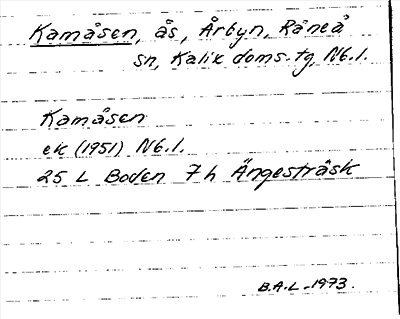 Kamåsen, ås, Årbyn, Råneå
sn, Kalix doms.tg, Nb.l.
Kamåsen
ek (1951) Nb.l.
25 L Boden 7h Ängesträsk
B.A.L-1973.